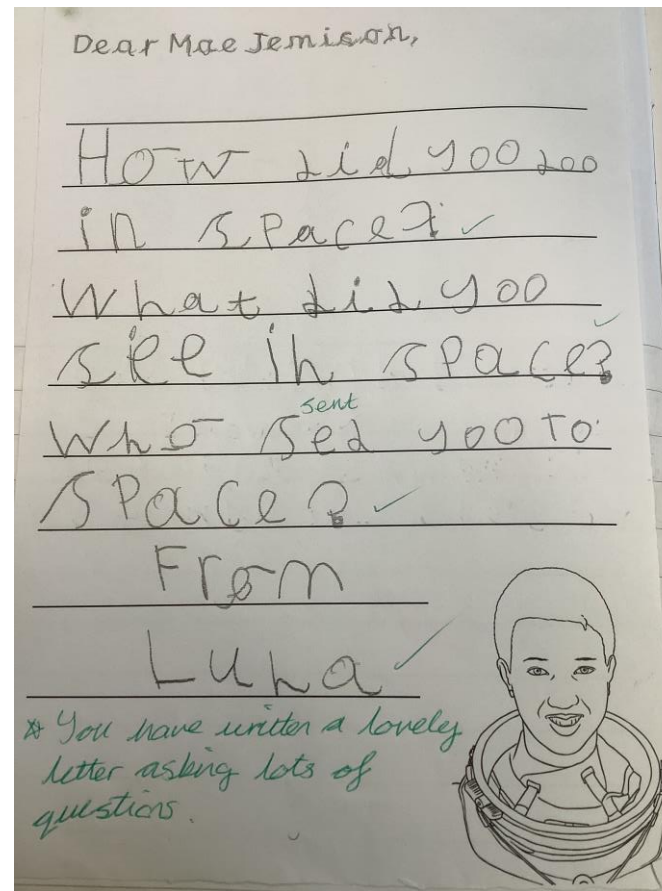 Dear Mae Jemison,
How did yoo doo
in space?
What did yoo
see in space?
sent
Who sed yoo to
space?
From
Luna
You have written a lovely
letter asking lots of
questions.